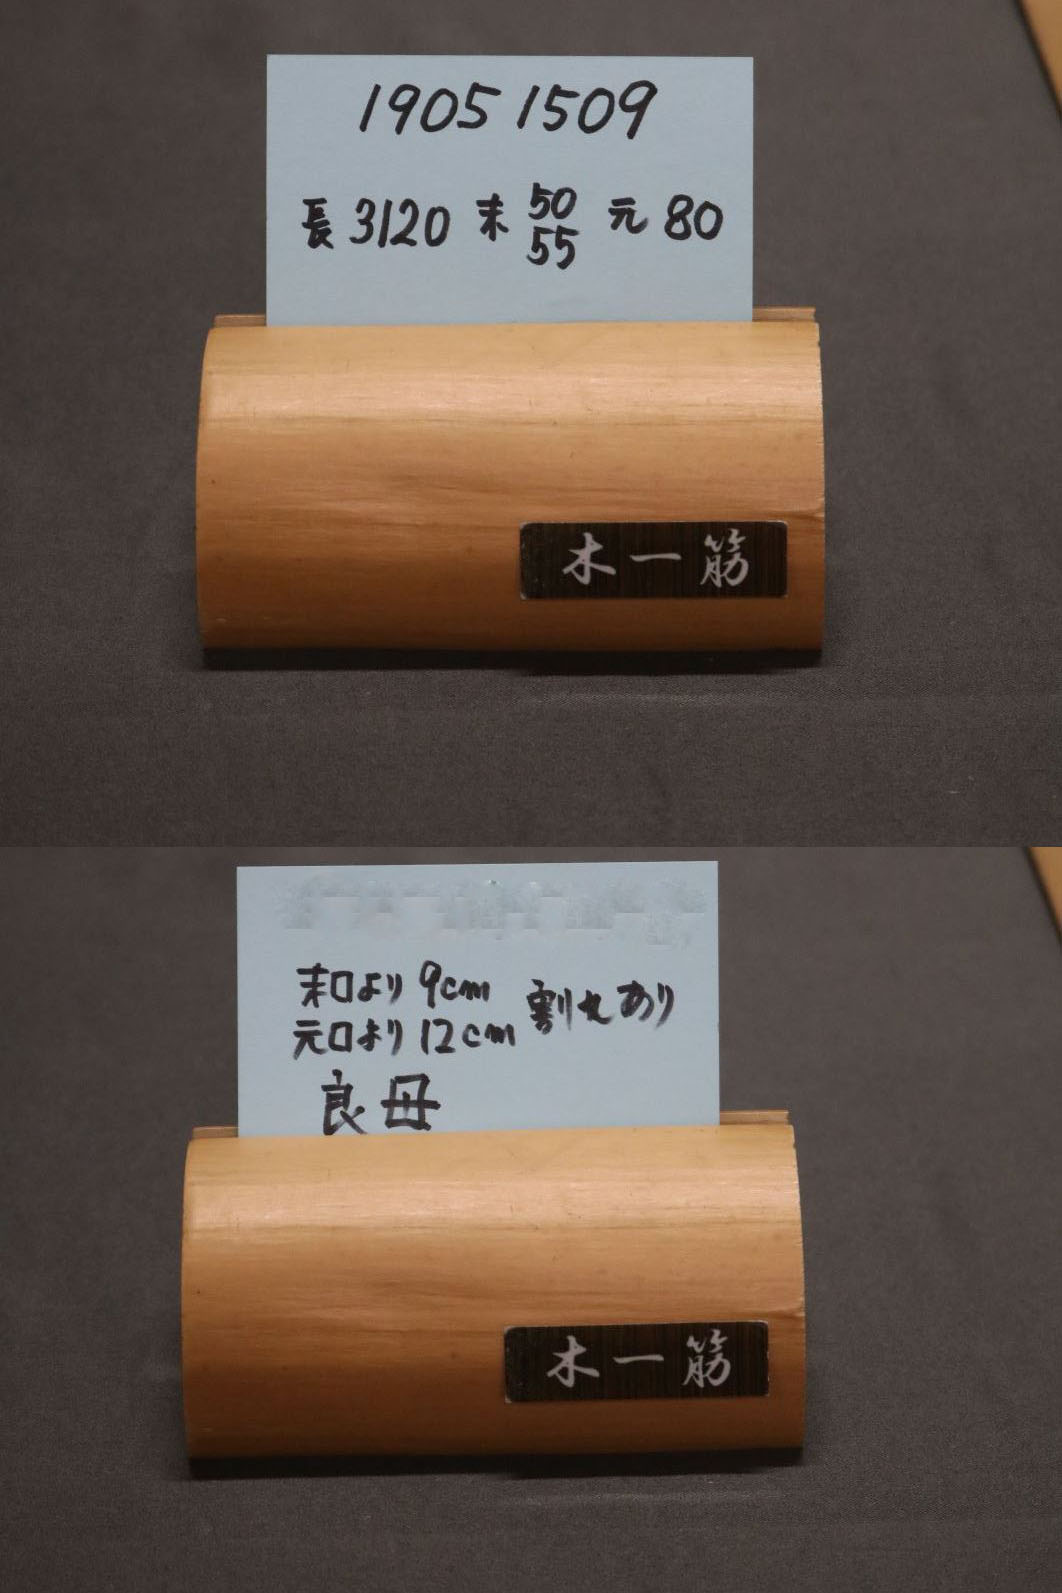 19051509
長3120 末 50/55 元80
木一筋
末口より 9cm 割れあり
元口より 12cm
良母
木一筋